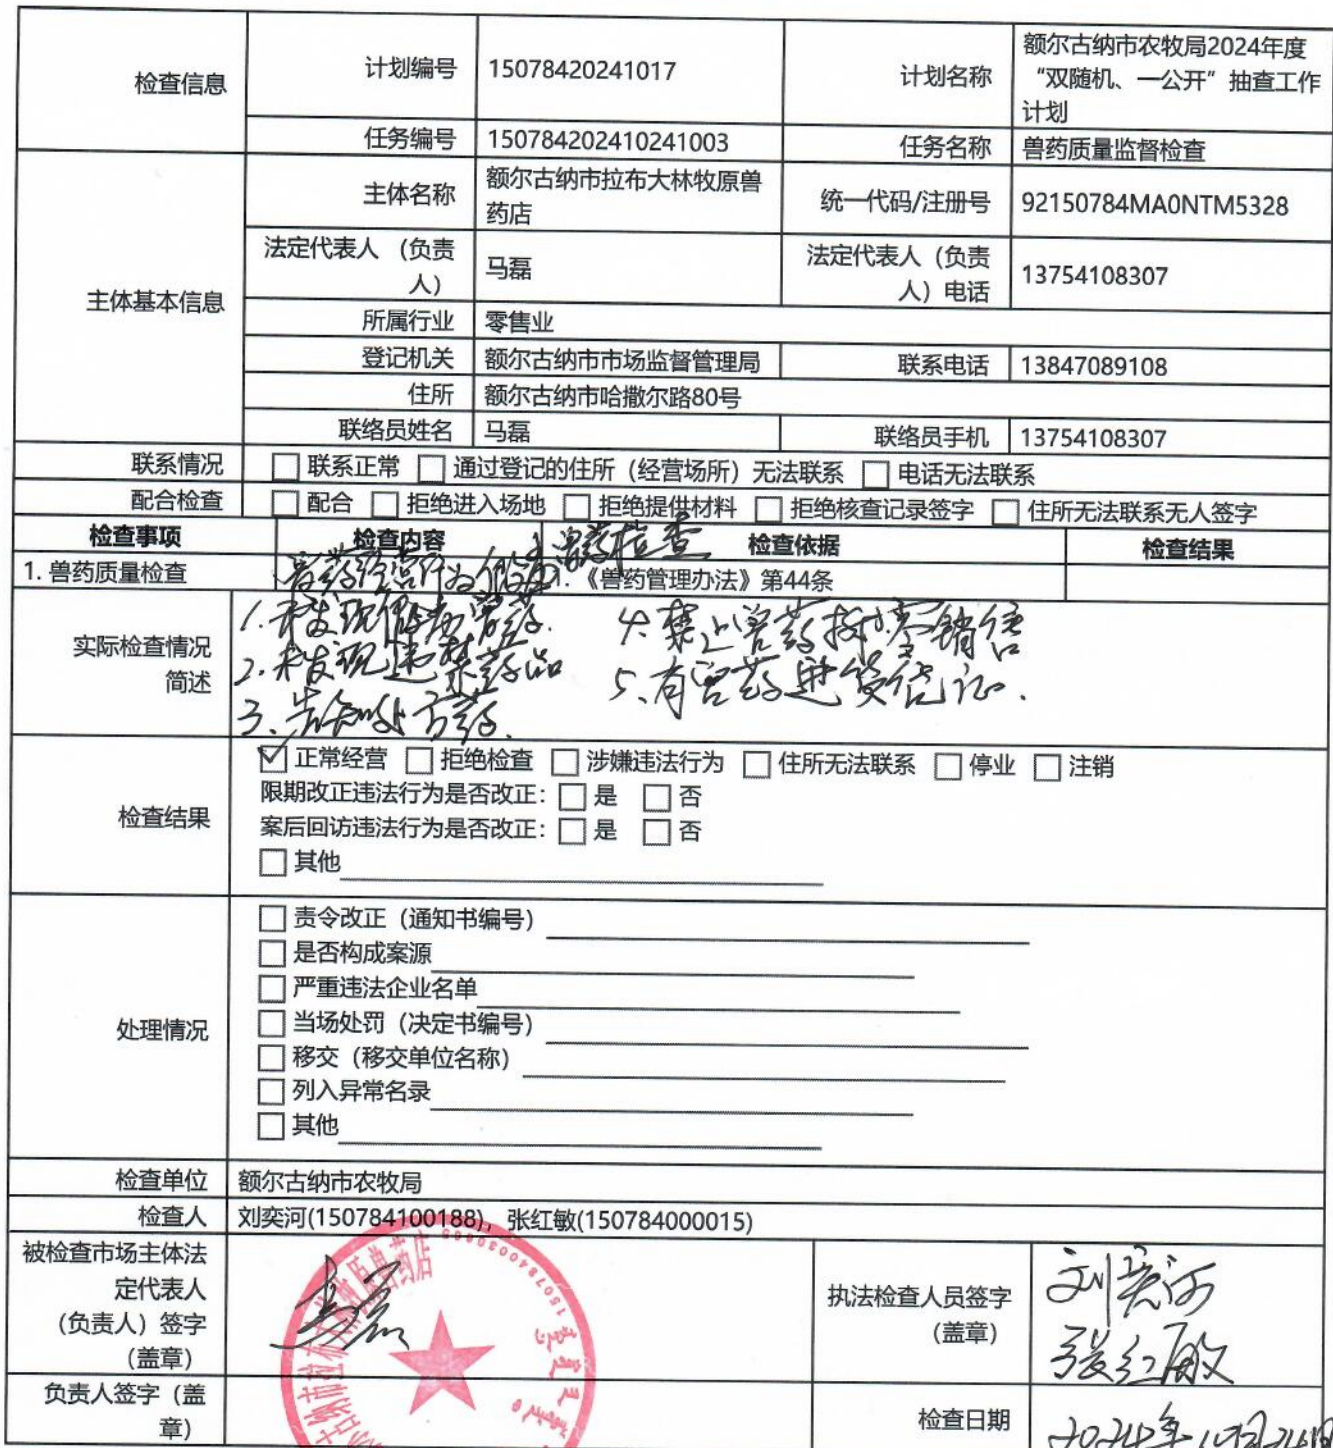 检查信息 计划编号 15078420241017 计划名称 额尔古纳市农牧局2024年度
“双随机、一公开”抽查工作
计划
任务编号 150784202410241003 任务名称 兽药质量监督检查
主体基本信息 主体名称 额尔古纳市拉布大林牧原兽
药店 统一代码/注册号 92150784MA0NTM5328
法定代表人 （负责
人） 马磊 法定代表人（负责
人）电话 13754108307
所属行业 零售业
登记机关 额尔古纳市市场监督管理局 联系电话 13847089108
住所 额尔古纳市哈撒尔路80号
联络员姓名 马磊 联络员手机 13754108307
联系情况 □ 联系正常 □ 通过登记的住所（经营场所）无法联系 □ 电话无法联系
配合检查 □ 配合 □ 拒绝进入场地 □ 拒绝提供材料 □ 拒绝核查记录签字 □ 住所无法联系无人签字
检查事项 检查内容 检查依据 检查结果
1. 兽药质量检查 兽药经营行为 假劣兽药检查 1. 《兽药管理办法》第44条
实际检查情况
简述
1.未发现假劣兽药.
2.未发现违禁药品
3.告知处方药.
4.禁止兽药拆零销售
5.有兽药进货凭证.
检查结果
☑ 正常经营 □ 拒绝检查 □ 涉嫌违法行为 □ 住所无法联系 □ 停业 □ 注销
限期改正违法行为是否改正：□ 是 □ 否
案后回访违法行为是否改正：□ 是 □ 否
□ 其他
处理情况
□ 责令改正（通知书编号）
□ 是否构成案源
□ 严重违法企业名单
□ 当场处罚（决定书编号）
□ 移交（移交单位名称）
□ 列入异常名录
□ 其他
检查单位 额尔古纳市农牧局
检查人 刘奕河(150784100188)，张红敏(150784000015)
被检查市场主体法
定代表人
（负责人）签字
（盖章）
马磊
执法检查人员签字
（盖章）
刘奕河
张红敏
负责人签字（盖
章）
检查日期 2024年10月26日